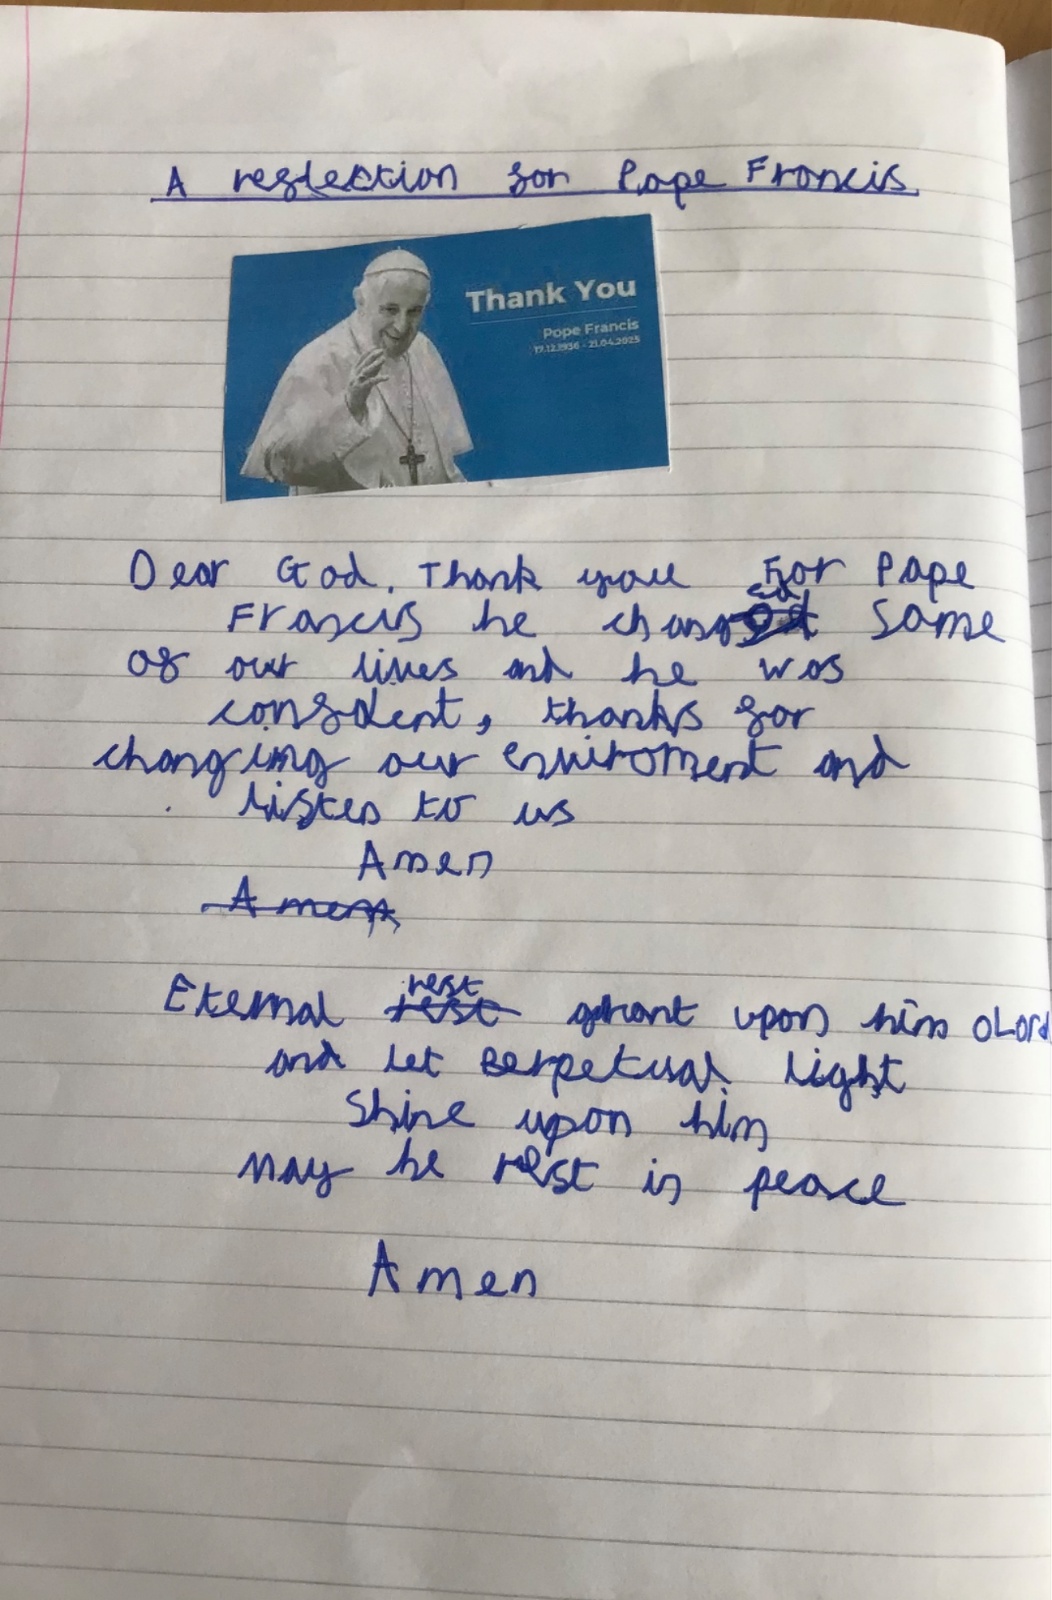 A reflection for Pope Francis
Thank You
Pope Francis
17.12.1936 - 21.04.2025
Dear God. Thank you For Pope
Francis he changed some
of our lives and he was
confident, thanks for
changing our enviroment and
listen to us
Amen
Amen
Eternal rest grant upon him O Lord
and let perpetual light
Shine upon him
may he rest in peace
Amen